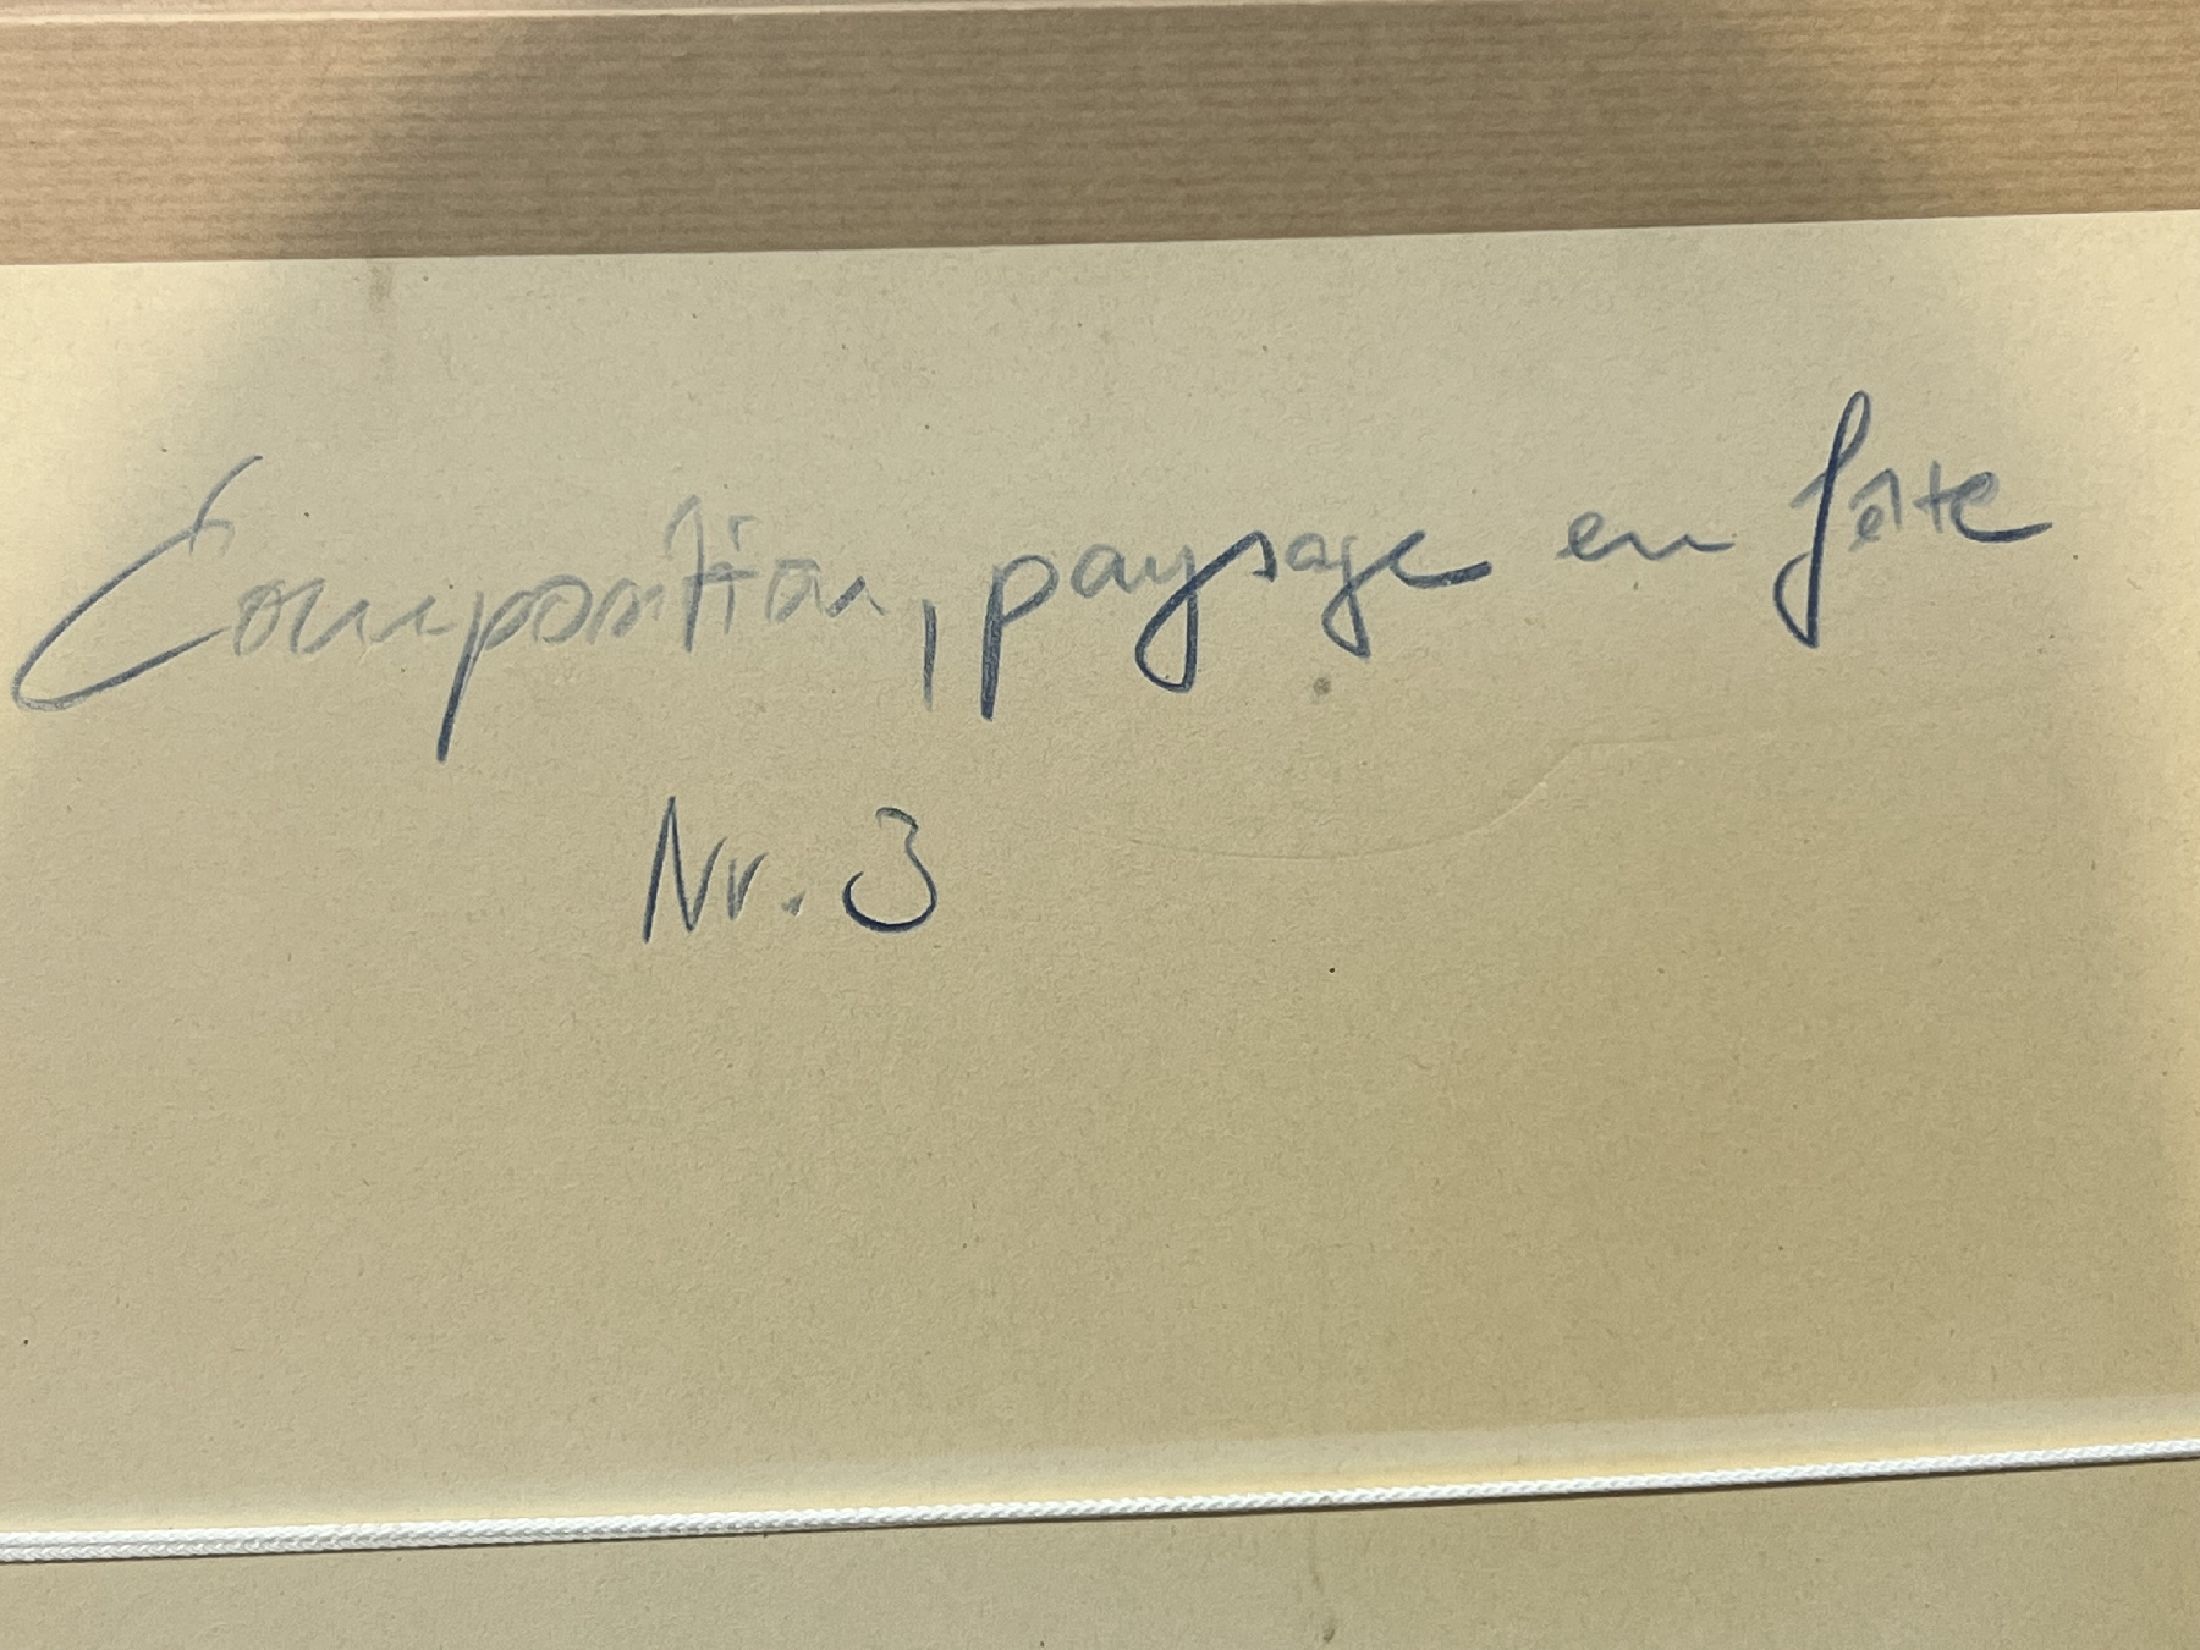 Composition, paysage en fête
Nr. 3